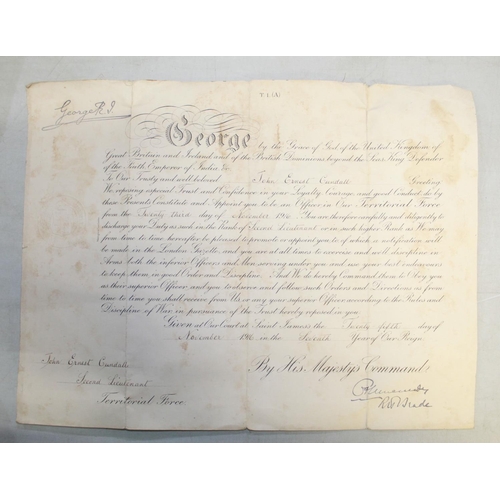 T 1 (A)
George R. I.
George by the Grace of God of the United Kingdom of
Great Britain and Ireland and of the British Dominions beyond the Seas, King Defender
of the Faith Emperor of India &c
To Our Trusty and well beloved John Ernest Greeting
We reposing especial Trust and Confidence in your Loyalty Courage and good Conduct do by
these Presents Constitute and Appoint you to be an Officer in Our Territorial Force
from the Twenty third day of November 1916. You are therefore carefully and diligently to
discharge your Duty as such in the Rank of Second Lieutenant or in such higher Rank as We may
from time to time hereafter be pleased to promote or appoint you to, of which a notification will
be made in the London Gazette, and you are at all times to exercise and well discipline in
Arms both the inferior Officers and Men serving under you and use your best endeavours
to keep them in good Order and Discipline. And We do hereby Command them to Obey you
as their superior Officer, and you to observe and follow such Orders and Directions as from
time to time you shall receive from Us, or any your superior Officer, according to the Rules and
Discipline of War, in pursuance of the Trust hereby reposed in you.
Given at Our Court, at Saint James's, the day of
November 1916 in the Seventh Year of Our Reign.
John Ernest
Second Lieutenant
Territorial Force
By His Majesty's Command